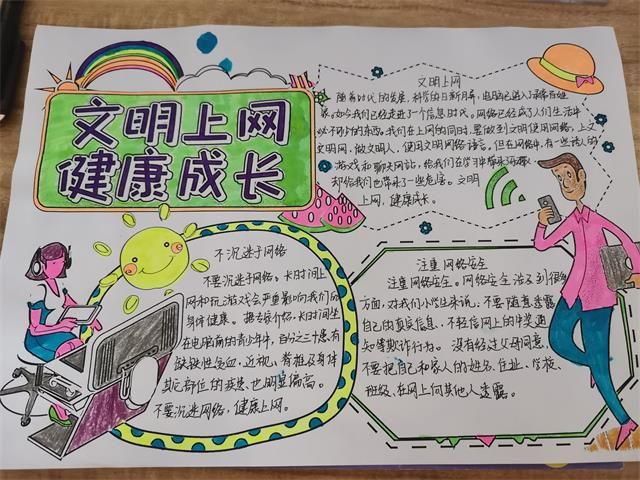 文明上网
健康成长
文明上网
随着时代的发展，科学的日新月异，电脑已进入了
家，如今我们已经走进了一个信息时代。网络已经成了人们生活中
不可少的东西。我们在上网的同时，要做到文明使用网络，上文
文明网，做文明人，使用文明网络语言。但在网络中，有一些
游戏和聊天网站，给我们在学习中带来
却给我们也带来了一些危害。文明
上网，健康成长。
不沉迷于网络
不要沉迷于网络。长时间上
网和玩游戏会严重影响我们的
身体健康。据专家介绍，长时间坐
在电脑前的青少年中，百分之三十患有
缺铁性贫血，近视、脊椎及身体
其它部位的疾患，也明显偏高。
不要沉迷网络，健康上网。
注重网络安全
注重网络安全。网络安全涉及到很
方面，对我们小学生来说，不要随意透露
自己的真实信息，不轻信网上的中奖通
知等欺诈行为。没有经过父母同意，
不要把自己和家人的姓名、住址、学校、
班级，在网上向其他人透露。